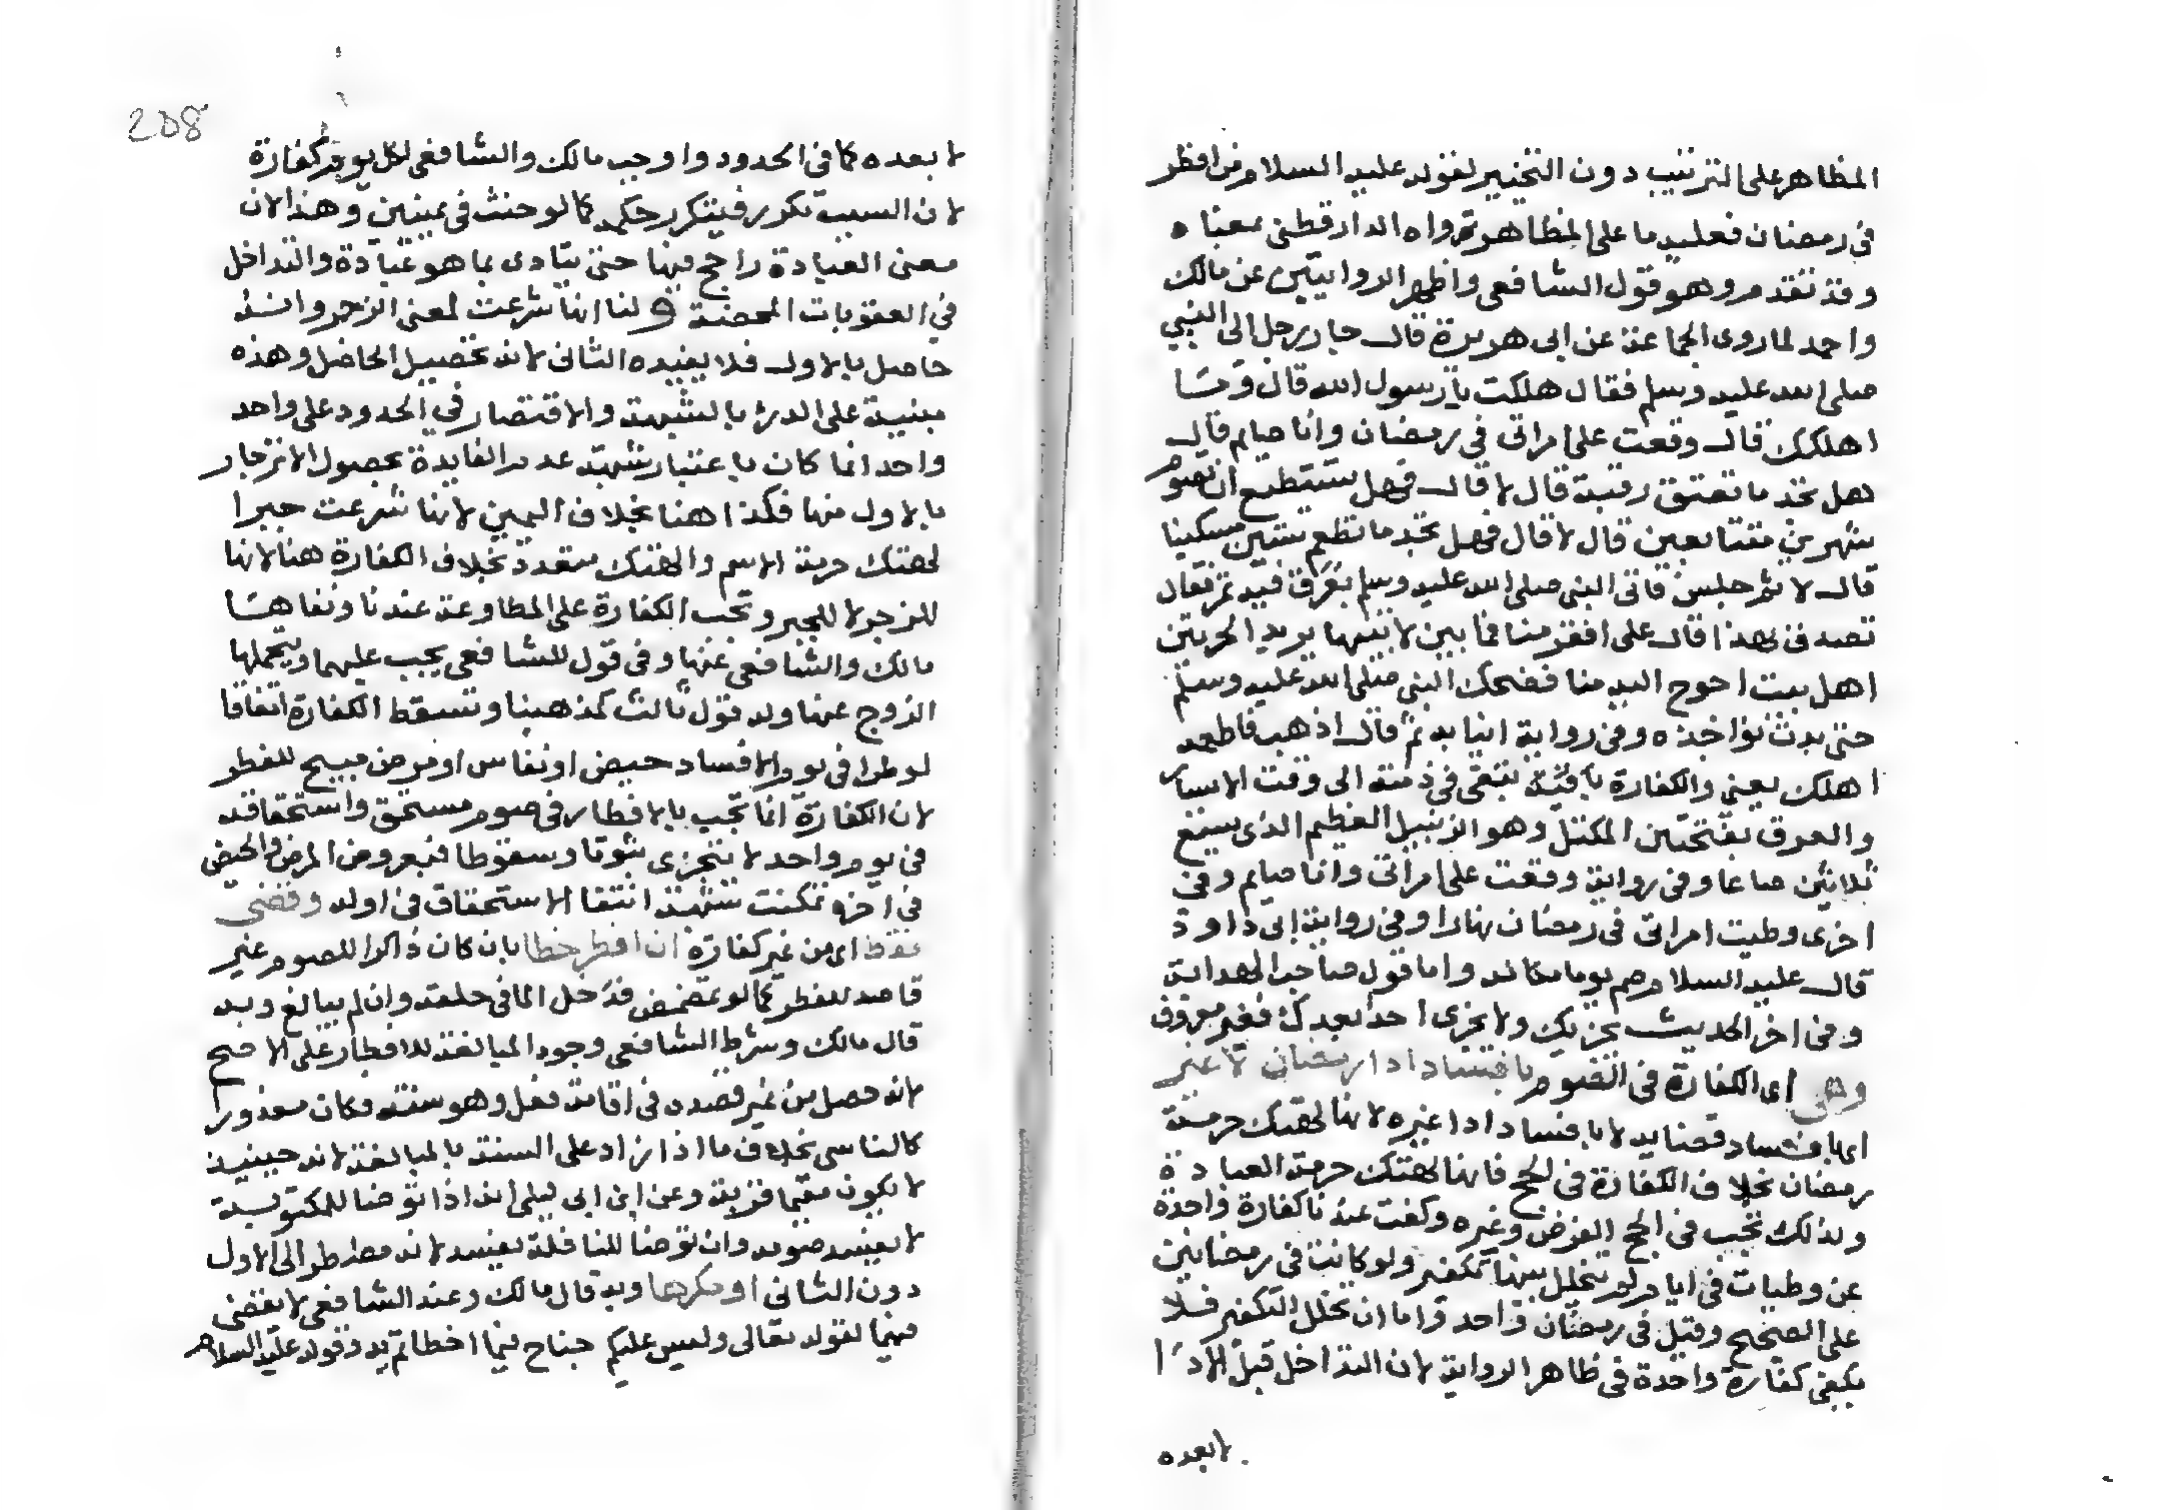 المظاهر على الترتيب دون التخيير لقوله عليه السلام من افطر
في رمضان فعليه ما على المظاهر رواه الدارقطني بمعناه
وقد تقدم وهو قول الشافعي واظهر الروايتين عن مالك
واحمد لما روى الجماعة عن ابي هريرة قال جاء رجل الى النبي
صلى الله عليه وسلم فقال هلكت يا رسول الله قال وما
اهلكك قال وقعت على امراتي في رمضان وانا صايم قال
هل تجد ما تعتق رقبة قال لا قال فهل تستطيع ان تصوم
شهرين متتابعين قال لا قال فهل تجد ما تطعم ستين مسكينا
قال لا ثم جلس فاتى النبي صلى الله عليه وسلم بعرق فيه تمر فقال
تصدق بهذا قال على افقر منا فما بين لابتيها يريد الحرتين
اهل بيت احوج اليه منا فضحك النبي صلى الله عليه وسلم
حتى بدت نواجذه وفي رواية انيابه ثم قال اذهب فاطعمه
اهلك يعني والكفارة باقية تبقى في ذمته الى وقت الايسار
والعرق بفتحتين المكتل وهو الزنبيل العظيم الذي يسع
ثلاثين صاعا وفي رواية وقعت على امراتي وانا صايم وفي
اخرى وطيت امراتي في رمضان نهارا وفي رواية ابي داود
قال عليه السلام صم يوما مكانه واما قول صاحب الهداية
وفي اخر الحديث يجزيك ولا يجزى احدا بعدك فغير معروف
وهي اى الكفارة في الصوم بافساد ادا رمضان لا غير
اى بافساد قضايه لا بافساد ادا غيره لانها لهتك حرمة
رمضان بخلاف الكفارة في الحج فانها لهتك حرمة العبادة
ولذلك تجب في الحج الفرض وغيره وكفت عندنا كفارة واحدة
عن وطيات في ايام لم يتخلل بينها تكفير ولو كانت في رمضانين
على الصحيح وقيل في رمضان واحد واما ان تخلل التكفير فلا
يكفي كفارة واحدة في ظاهر الرواية لان التداخل قبل الادا
لا بعده
208
لا بعده كما في الحدود واوجب مالك والشافعي لكل يوم كفارة
لان السبب تكرر فيتكرر حكمه كما لو حنث في يمينين وهذا لان
معنى العبادة راجح فيها حتى يتادى بما هو عبادة والتداخل
في العقوبات المحضة ولنا انها شرعت لمعنى الزجر وانه
حاصل بالاول فلا يفيده الثاني لانه تحصيل الحاصل وهذه
مبنية على الدرء بالشبهة والاقتصار في الحدود على واحد
واحد انما كان باعتبار شبهة عدم الفايدة بحصول الانزجار
بالاول منها فكذا هنا بخلاف اليمين لانها شرعت جبرا
لهتك حرمة الاسم والهتك متعدد بخلاف الكفارة هنا لانها
للزجر لا للجبر وتجب الكفارة على المطاوعة عندنا ونفاها
مالك والشافعي عنها وفي قول للشافعي يجب عليهما ويتحملها
الزوج عنها وله قول ثالث كمذهبنا وتسقط الكفارة اتفاقا
لو طرا في يوم الافساد حيض او نفاس او مرض مبيح للفطر
لان الكفارة انما تجب بالافطار في صوم مستحق واستحقاقه
في يوم واحد لا يتجزى ثبوتا وسقوطا فبعروض المرض والحيض
في اخره تمكنت شبهة انتفا الاستحقاق في اوله وقضى
فقط اى من غير كفارة ان افطر خطا بان كان ذاكرا للصوم غير
قاصد للفطر كما لو تمضمض فدخل الما في حلقه وان لم يبالغ وبه
قال مالك وشرط الشافعي وجود المبالغة للافطار على الاصح
لانه حصل من غير قصده في اقامة فعل وهو سنته فكان معذورا
كالناسى بخلاف ما اذا زاد على السنة بالمبالغة لانه حينيذ
لا يكون مقيما قربة وعن ابن ابي ليلى انه اذا توضا للمكتوبة
لا يفسد صومه وان توضا للنافلة يفسد لانه مضطر الى الاول
دون الثاني او مكرها وبه قال مالك وعند الشافعي لا يقضى
فيهما لقوله تعالى وليس عليكم جناح فيما اخطاتم به وقوله عليه السلام